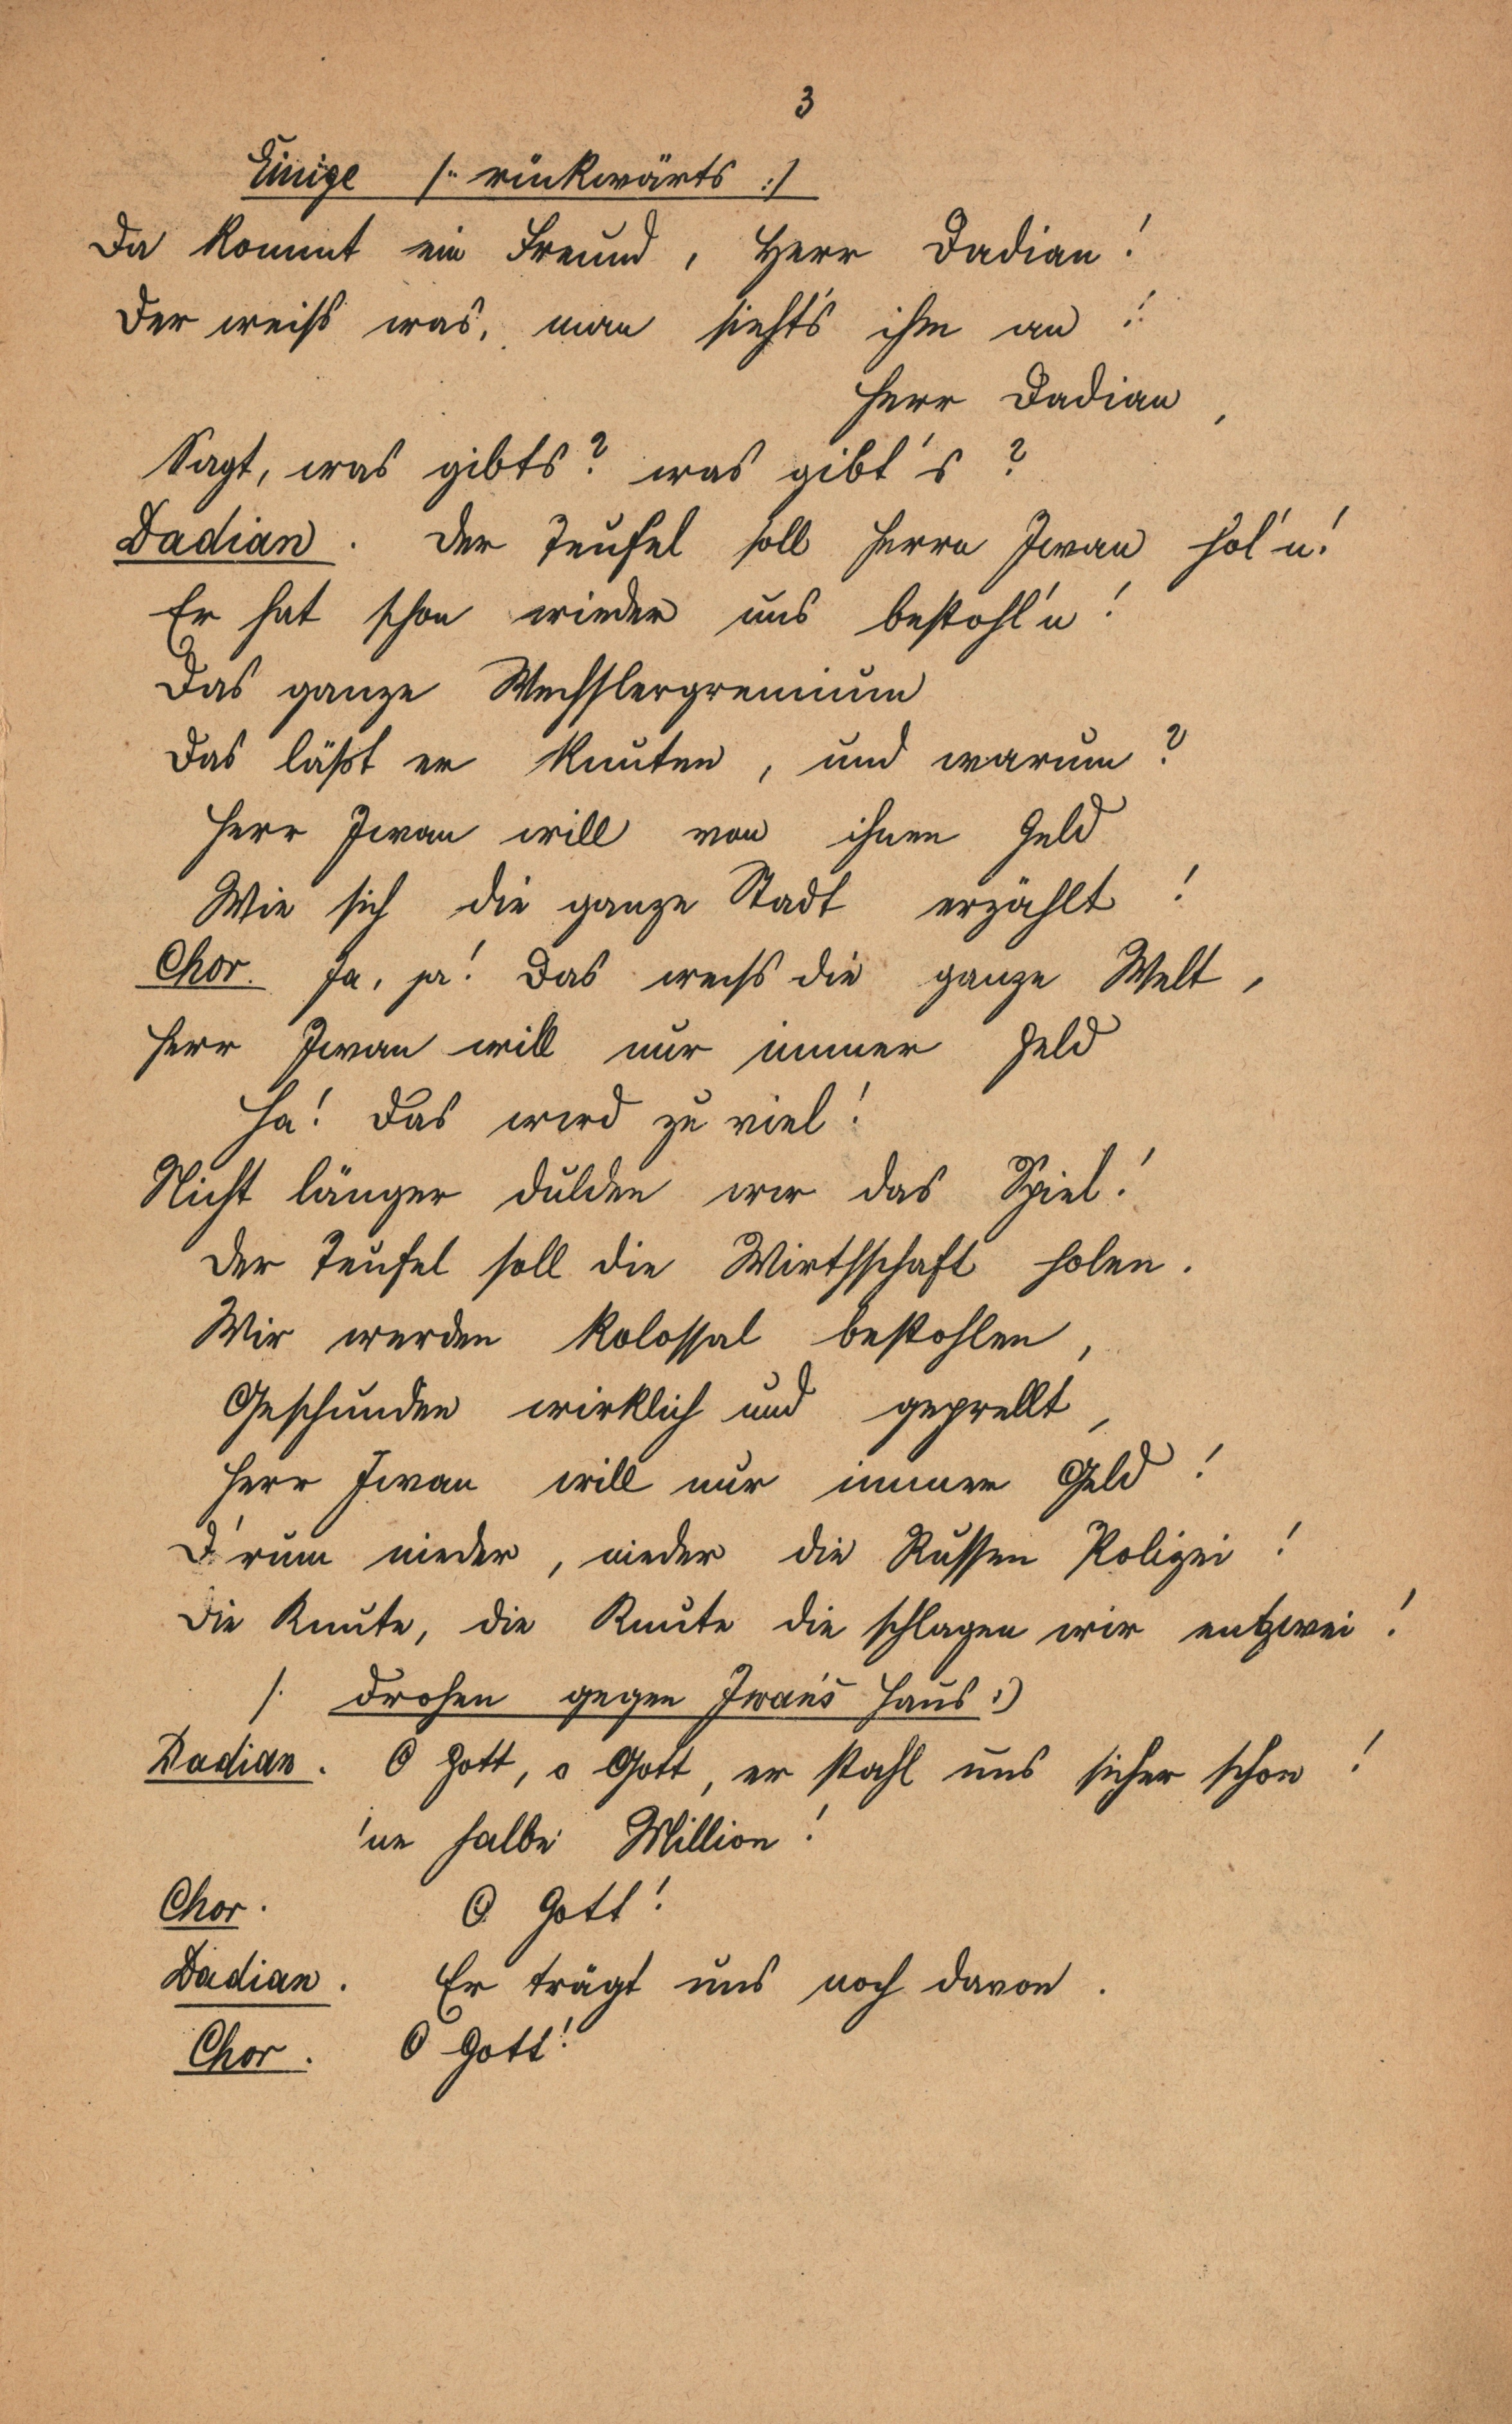 3
Einige /: rückwärts :/
Da kommt ein Freund, Herr Dadian!
Der weiß was, man sieht's ihm an!
Herr Dadian,
Sagt, was gibts? was gibt's?
Dadian. Der Teufel soll Herrn Iwan hol'n!
Er hat schon wieder uns bestohl'n!
Das ganze Wechslergremium
Das läßt er knuten, und warum?
Herr Iwan will von ihnen Geld
Wie sich die ganze Stadt erzählt!
Chor. Ja, ja! Das weiß die ganze Welt,
Herr Iwan will nur immer Geld
Ha! Das wird zu viel!
Nicht länger dulden wir das Spiel!
Der Teufel soll die Wirthschaft holen.
Wir werden kolossal bestohlen,
Geschunden wirklich und geprellt,
Herr Iwan will nur immer Geld!
D'rum nieder, nieder die Russen Polizei!
Die Knute, die Knute die schlagen wir entzwei!
/: drohen gegen Iwan's Haus :)
Dadian. O Gott, o Gott, er stahl uns sicher schon!
'ne halbe Million!
Chor. O Gott!
Dadian. Er trägt uns noch davon.
Chor. O Gott!